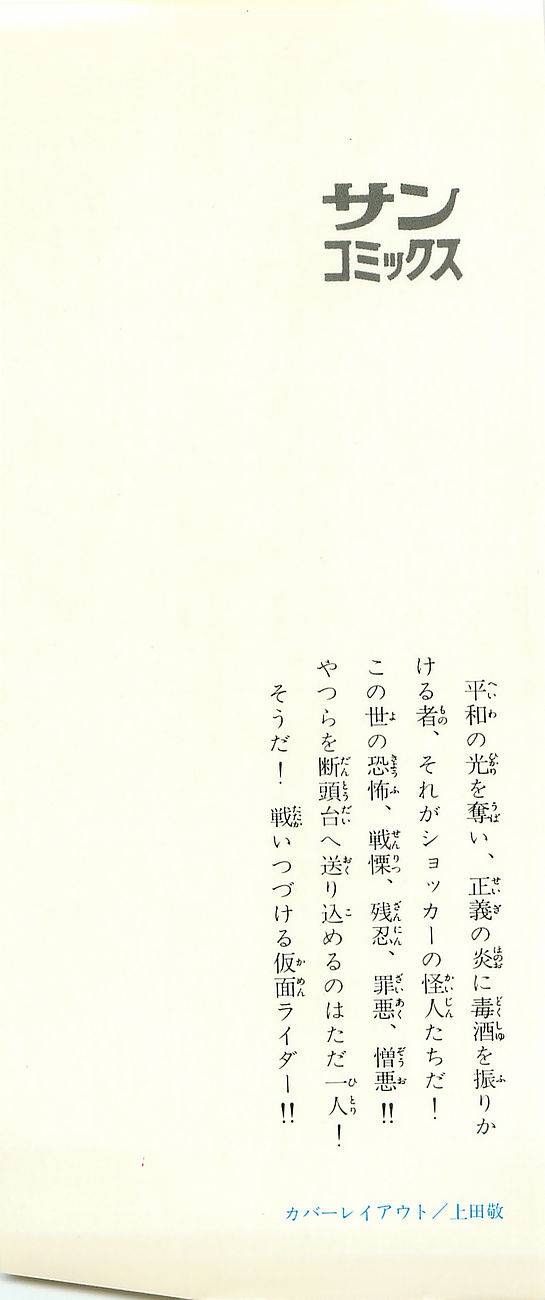 サン
コミックス
平和の光を奪い、正義の炎に毒酒を振りか
ける者、それがショッカーの怪人たちだ！
この世の恐怖、戦慄、残忍、罪悪、憎悪!!
やつらを断頭台へ送り込めるのはただ一人！
そうだ！　戦いつづける仮面ライダー!!
カバーレイアウト／上田敬